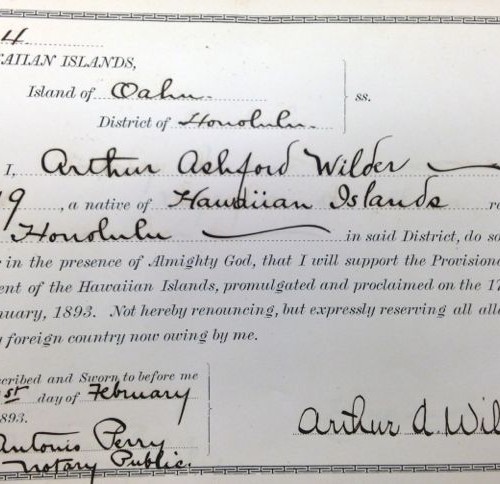 4
AIIAN ISLANDS,
Island of Oahu.
ss.
District of Honolulu.
I, Arthur Ashford Wilder
19, a native of Hawaiian Islands
Honolulu in said District, do so
in the presence of Almighty God, that I will support the Provisiona
ent of the Hawaiian Islands, promulgated and proclaimed on the 17
nuary, 1893. Not hereby renouncing, but expressly reserving all all
foreign country now owing by me.
cribed and Sworn to before me
1st day of February
893.
Antonio Perry
Notary Public.
Arthur A. Wil